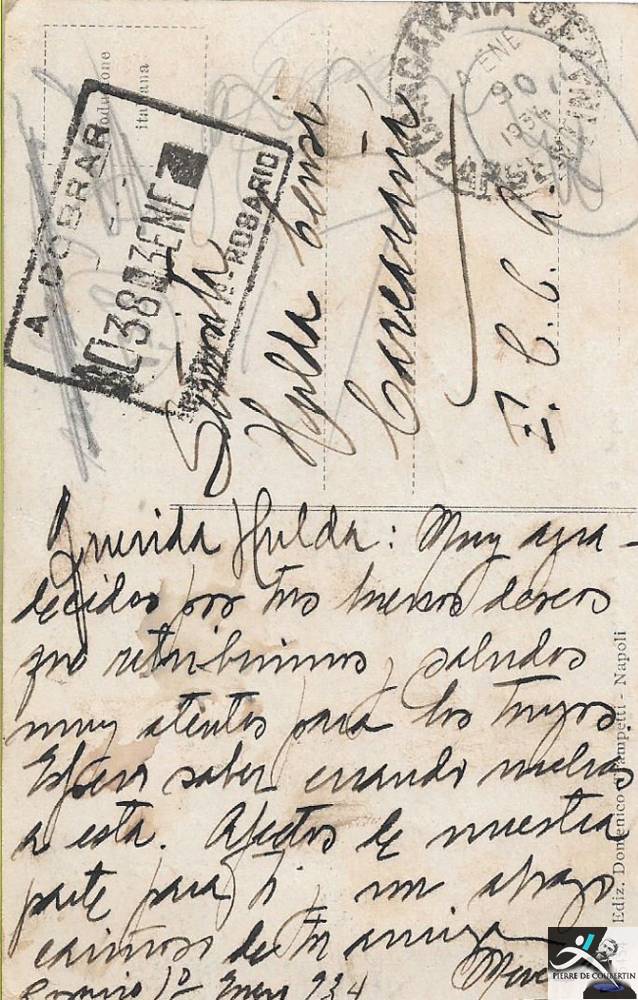 Produzione
italiana
A COBRAR
03 ENE
ROSARIO
CARCARAÑA
ENE
1934
ARGENTINA
Señorita
Hulda Censi
Carcarañá
F. C. C. A.
Querida Hulda: Muy agra-
decidos por tus buenos deseos
que retribuimos, saludos
muy atentos para los tuyos.
Espero saber cuando vuelvas
a esta. Afectos de nuestra
parte para ti, un abrazo
cariñoso de tu amiga
Rosario 1º Enero 934
Ediz. Domenico - Napoli
PIERRE DE COUBERTIN